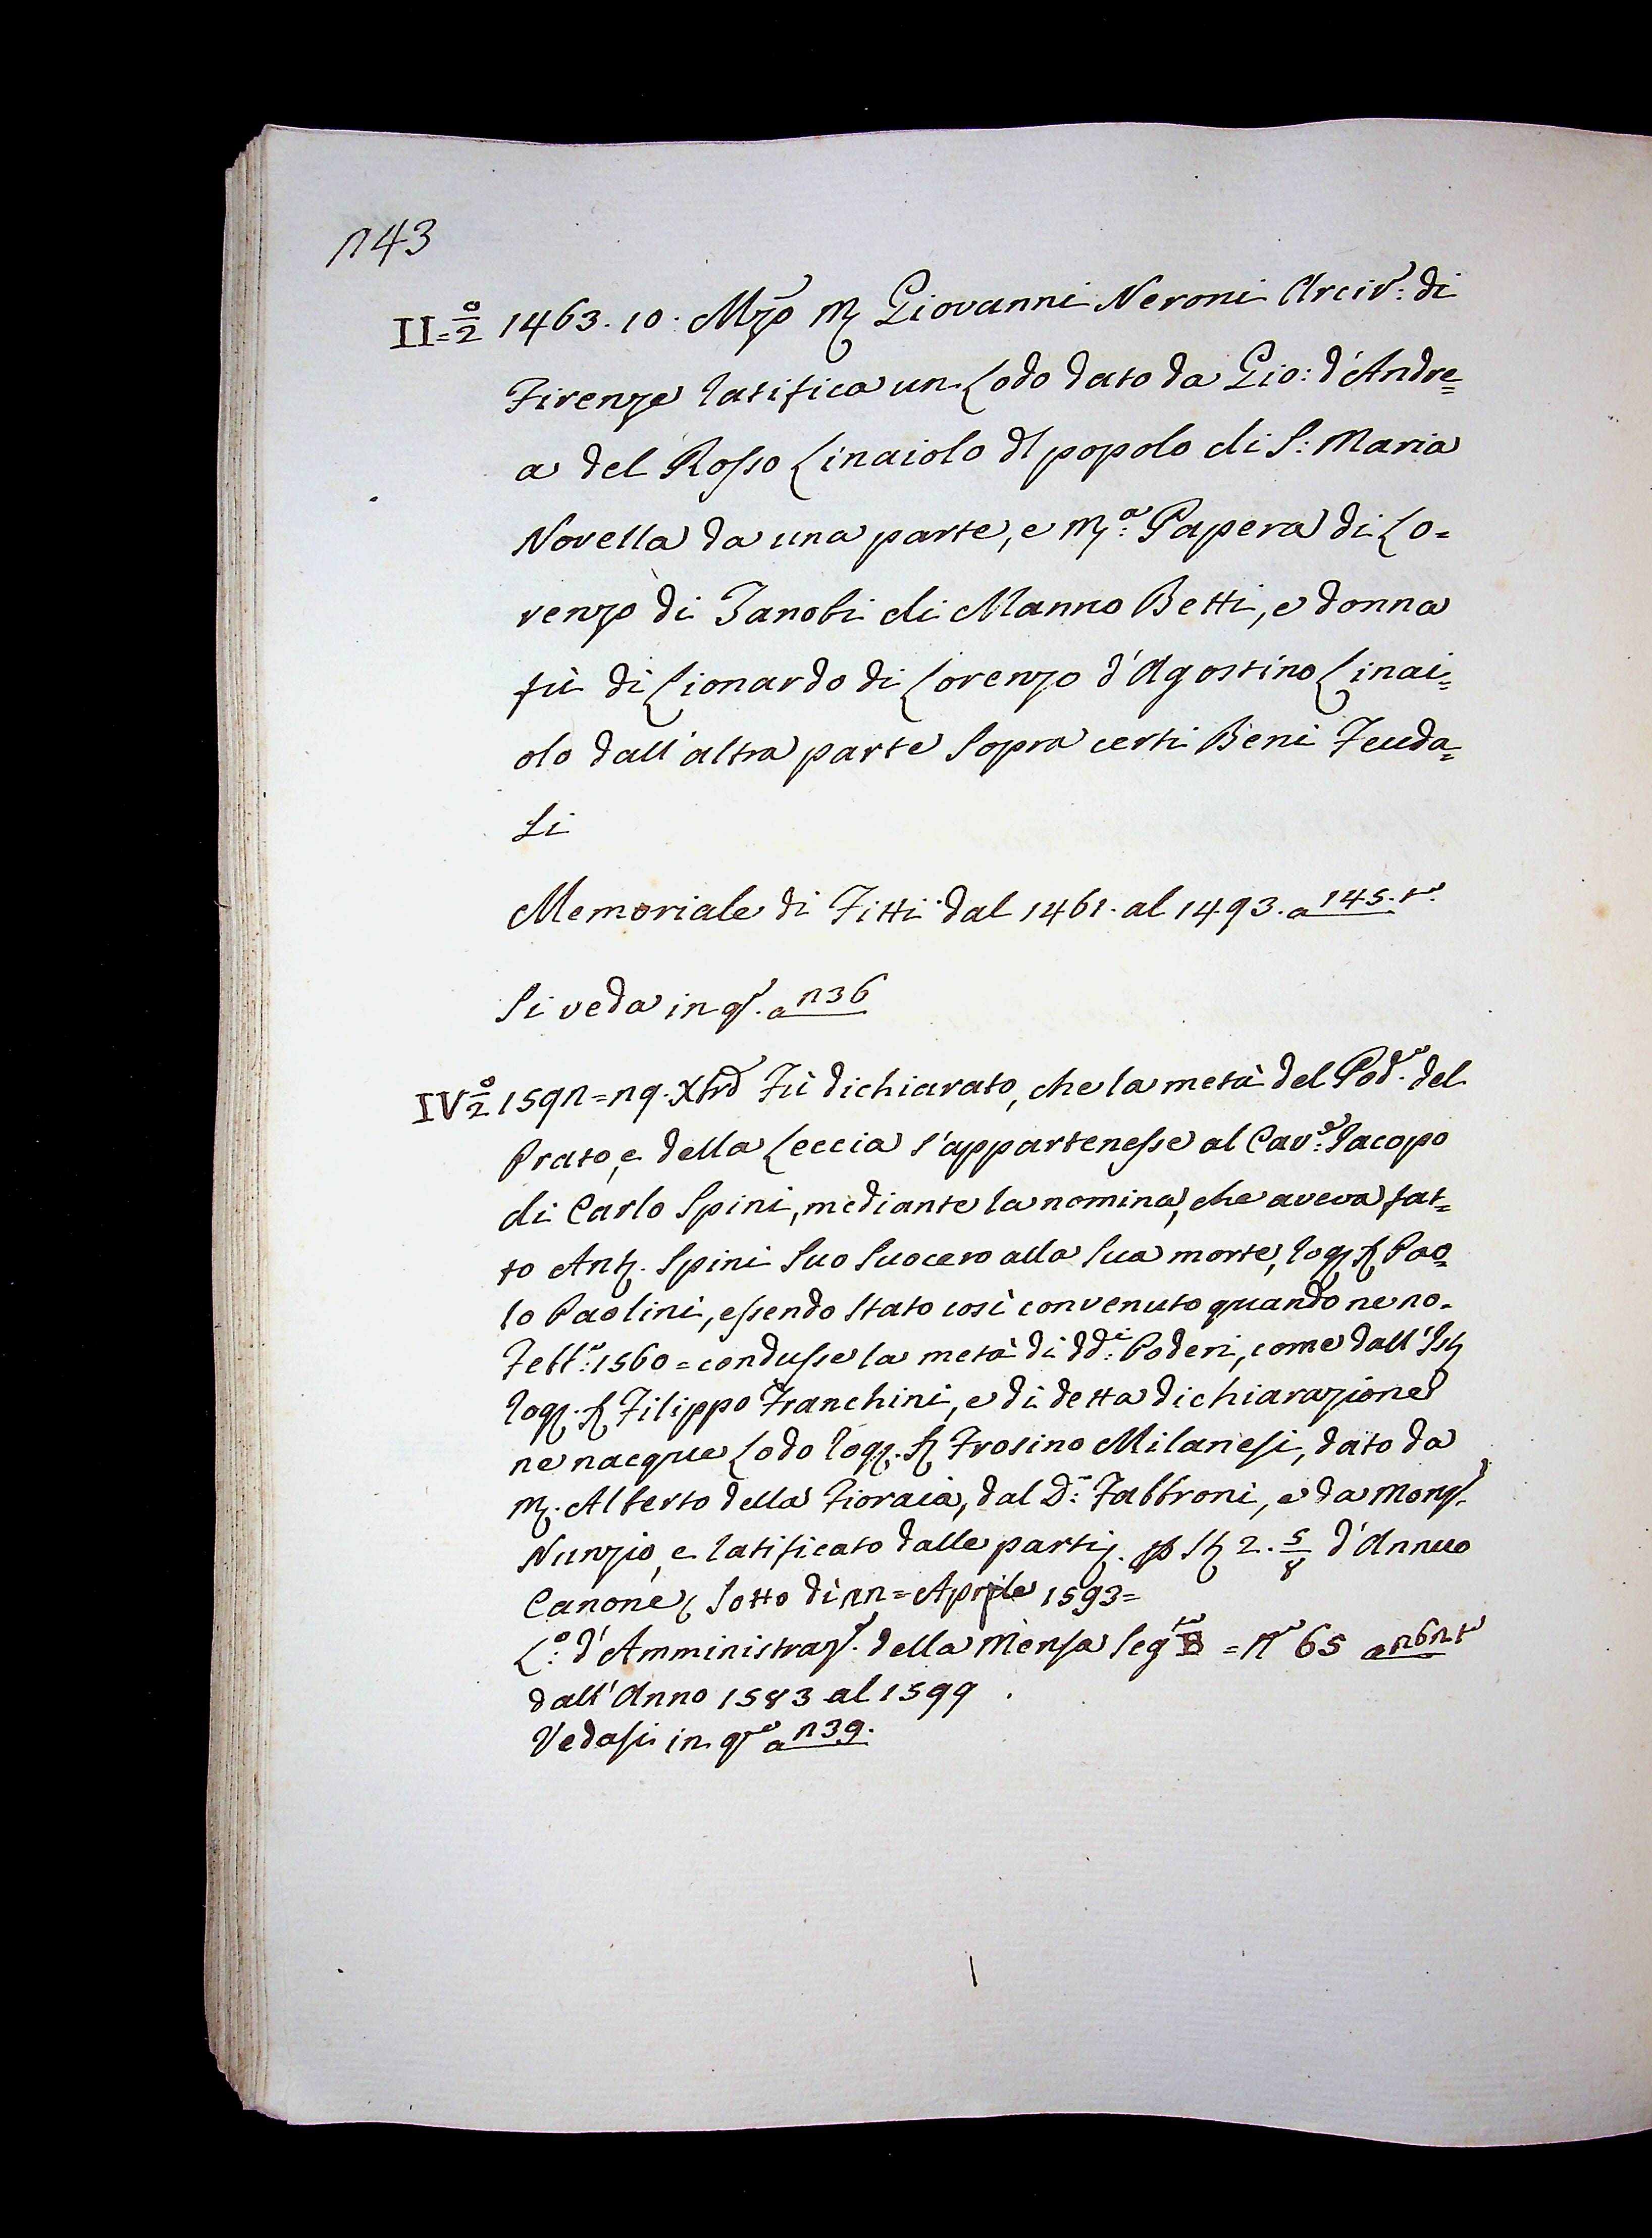 143
II=0/2 1463. 10. Mzo M Giovanni Neroni Arciv: di
Firenze latifica un Lodo dato da Gio: d'Andre=
a del Rosso Linaiolo dl popolo di S: Maria
Novella da una parte, e Mª: Papera di Lo=
renzo di Zanobi di Manno Betti, e donna
fù di Lionardo di Lorenzo d'Agostino Linai=
olo dall'altra parte sopra certi Beni Feuda=
li
Memoriale di Fitti dal 1461. al 1493. a 145. to
Si veda in qs. a 136
IV 0/2 1591=19. Xbre Fù dichiarato, che la metà del Pod. del
Prato, e della Leccia s'appartenesse al Cave: Iacopo
di Carlo Spini, mediante la nomina, che aveva fat=
to Ant. Spini suo Suocero alla sua morte, rog. Pao=
lo Paolini, essendo stato così convenuto quando ne 10.
Febb: 1560= condusse la metà di ddi: Poderi, come dall'
rog. Filippo Franchini, e di detta dichiarazione
ne nacque Lodo rog. Frosino Milanesi, dato da
M. Alberto della Fioraia, dal Dr: Fabbroni, e da Mons.
Nunzio, e latificato dalle parti 2. 5/8 d'Annuo
Canone, sotto dì 11= Aprile 1593=
Lo: d'Amministraz. della Mensa Segto B = No 65 a 161. to
dall'Anno 1583 al 1599.
Vedasi in qto a 139.